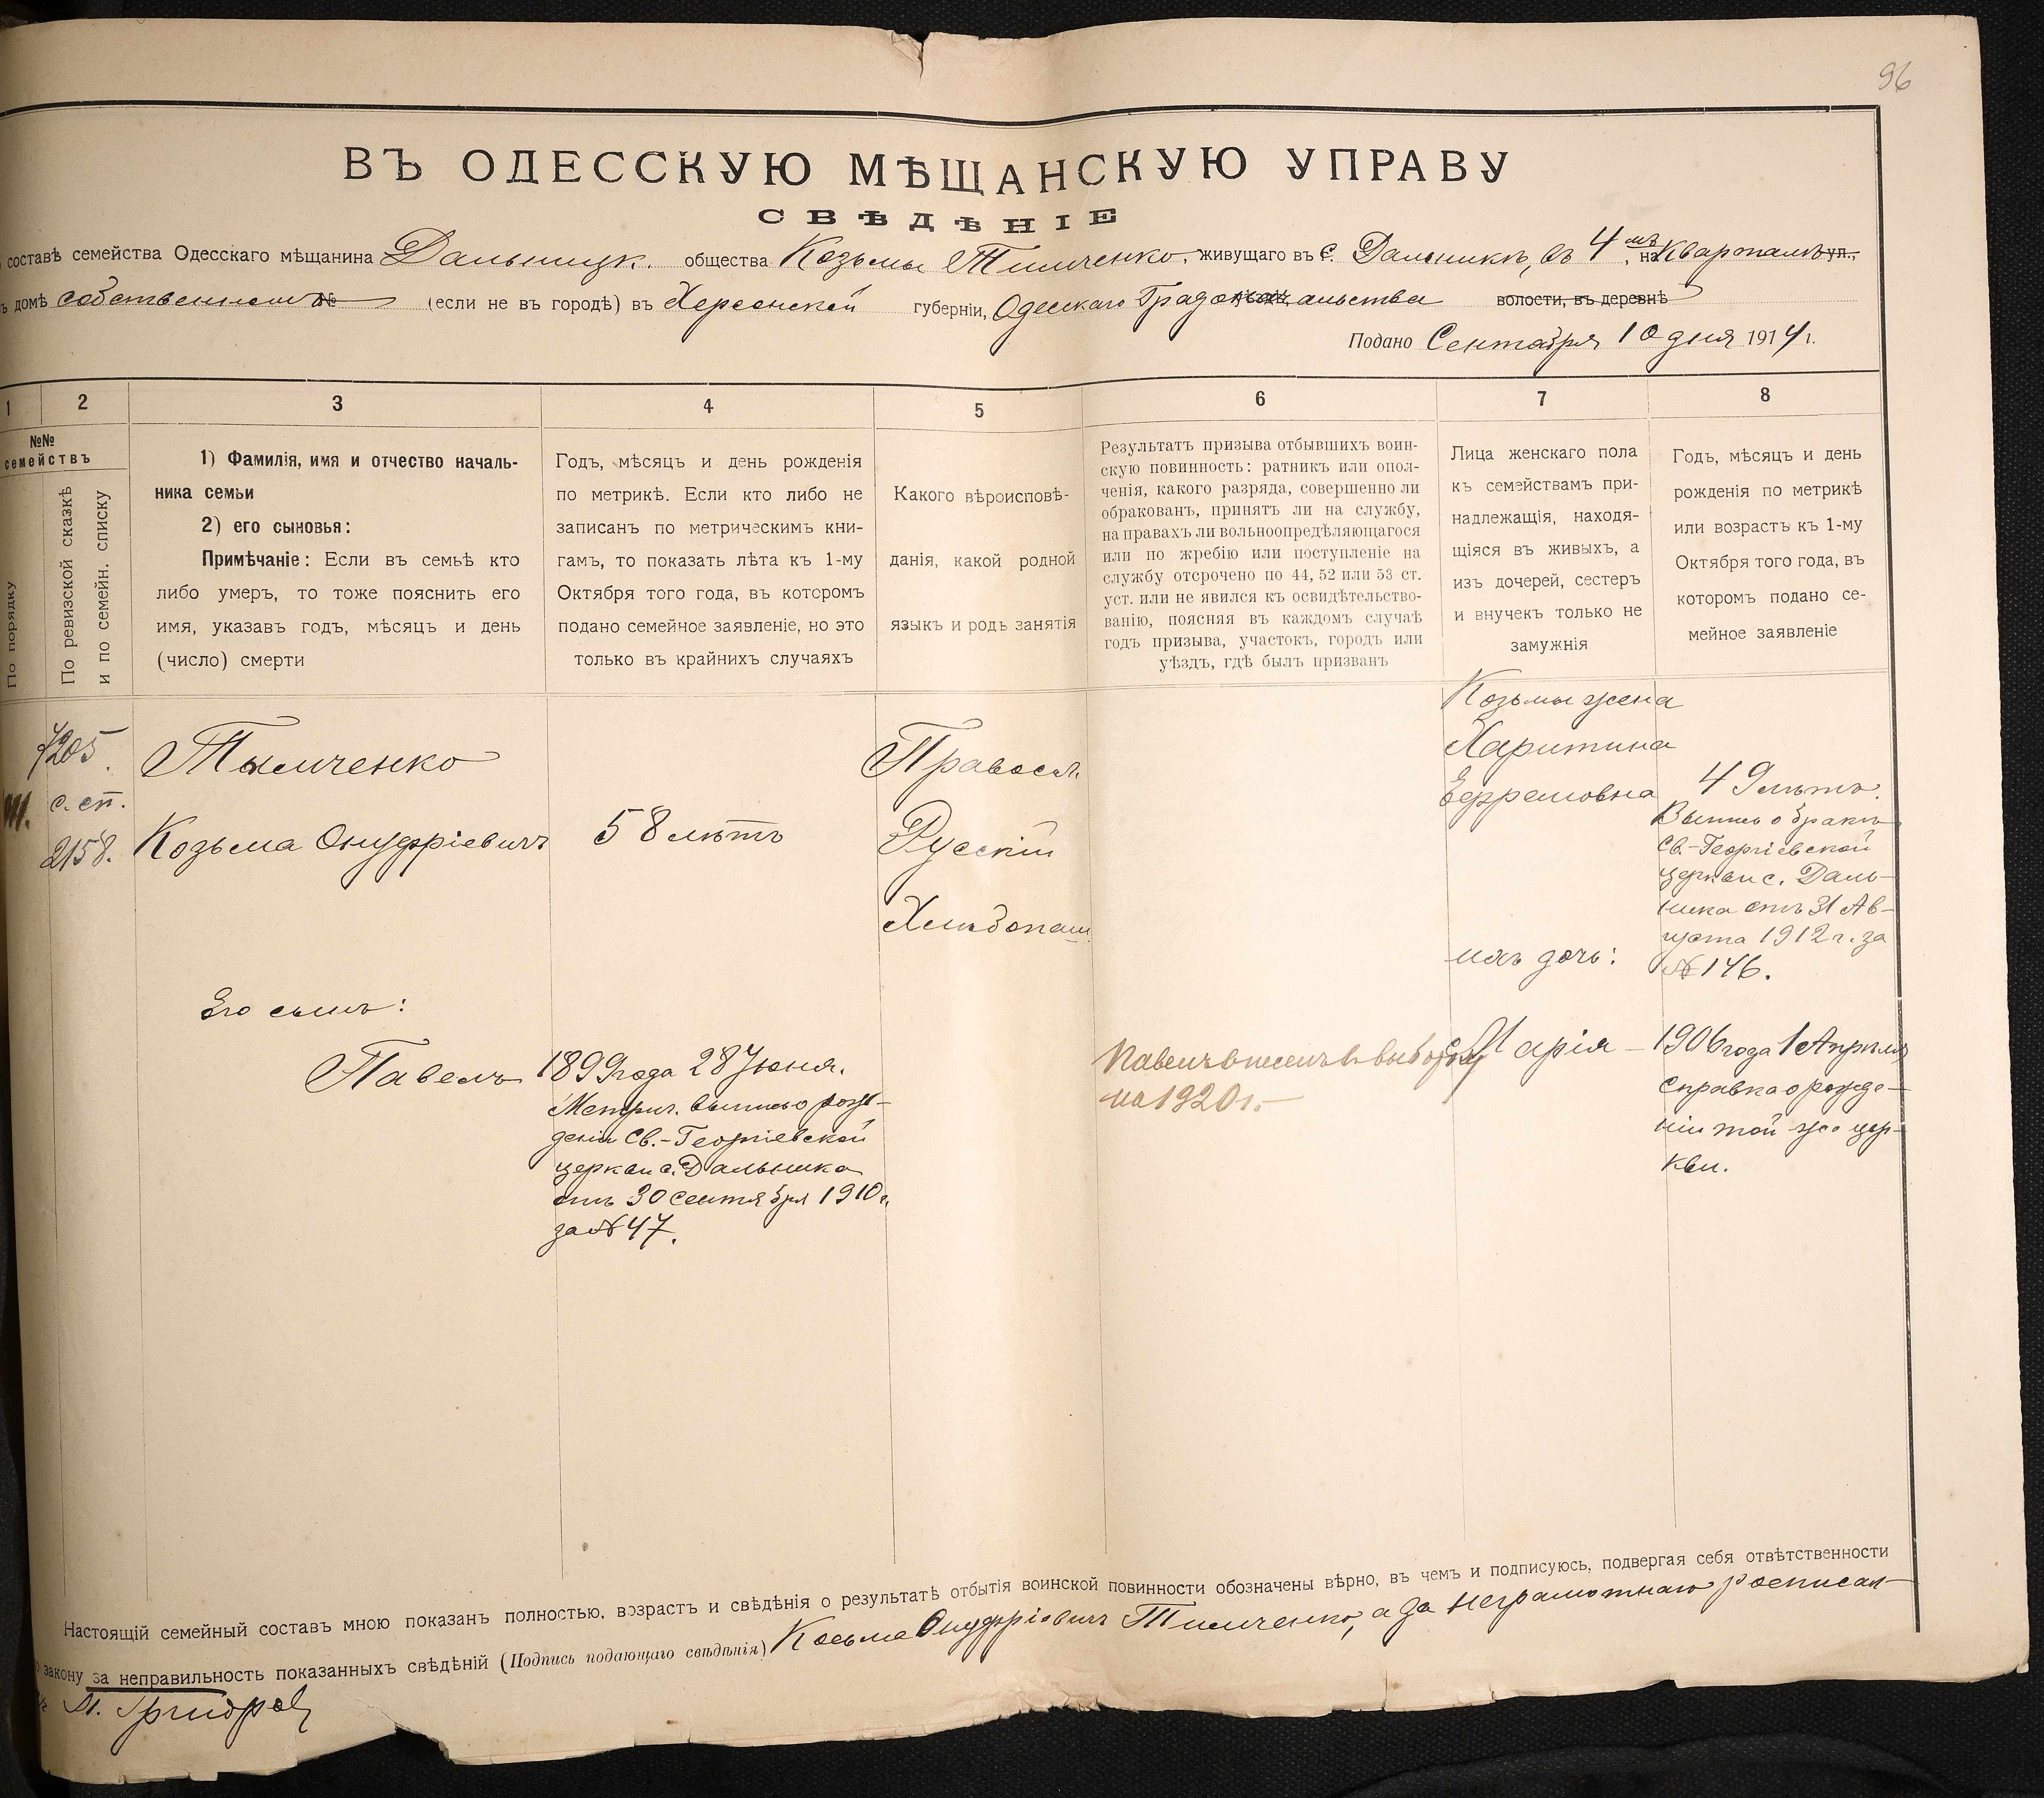 96
ВЪ ОДЕССКУЮ МѢЩАНСКУЮ УПРАВУ
СВѢДѢНІЕ
составѣ семейства Одесскаго мѣщанина Дальницк. общества Козьмы Тимченко, живущаго въ С. Дальникѣ, въ 4 мъ на Кварталѣ ул.,
ъ домѣ собственномъ № (если не въ городѣ) въ Херсонской губерніи, Одесскаго Градоначальства волости, въ деревнѣ
Подано Сентября 10 дня 1914 г.
1 2 3 4 5 6 7 8
№№
семействъ
По порядку
По ревизской сказкѣ
и по семейн. списку
1) Фамилія, имя и отчество началь-
ника семьи
2) его сыновья:
Примѣчаніе: Если въ семьѣ кто
либо умеръ, то тоже пояснить его
имя, указавъ годъ, мѣсяцъ и день
(число) смерти
Годъ, мѣсяцъ и день рожденія
по метрикѣ. Если кто либо не
записанъ по метрическимъ кни-
гамъ, то показать лѣта къ 1-му
Октября того года, въ которомъ
подано семейное заявленіе, но это
только въ крайнихъ случаяхъ
Какого вѣроисповѣ-
данія, какой родной
языкъ и родъ занятія
Результатъ призыва отбывшихъ воин-
скую повинность: ратникъ или опол-
ченія, какого разряда, совершенно ли
обракованъ, принятъ ли на службу,
на правахъ ли вольноопредѣляющагося
или по жребію или поступленіе на
службу отсрочено по 44, 52 или 53 ст.
уст. или не явился къ освидѣтельство-
ванію, поясняя въ каждомъ случаѣ
годъ призыва, участокъ, городъ или
уѣздъ, гдѣ былъ призванъ
Лица женскаго пола
къ семействамъ при-
надлежащія, находя-
щіяся въ живыхъ, а
изъ дочерей, сестеръ
и внучекъ только не
замужнія
Годъ, мѣсяцъ и день
рожденія по метрикѣ
или возрастъ къ 1-му
Октября того года, въ
которомъ подано се-
мейное заявленіе
205
с. сп.
2158.
Тимченко
Козьма Онуфріевичъ
58 лѣтъ
Правосл.
Русскій
Хлѣбопаш.
Козьмы жена
Харитина
Ефремовна
49 лѣтъ.
Выпись о бракѣ
Св.-Георгіевской
церкви с. Даль-
ника отъ 31 Ав-
густа 1912 г. за
№ 146.
ихъ дочь:
Его сынъ:
Павелъ
1899 года 28 Іюня.
Метрич. выпись о рож-
деніи Св.-Георгіевской
церкви с. Дальника
отъ 30 Сентября 1910 г.
за № 47.
Павелъ внесенъ въ выборку
на 1920 г.
Марія — 1906 года 1 Апрѣля
Справка о рожде-
ніи той же цер-
кви.
Настоящій семейный составъ мною показанъ полностью, возрастъ и свѣдѣнія о результатѣ отбытія воинской повинности обозначены вѣрно, въ чемъ и подписуюсь, подвергая себя отвѣтственности
закону за неправильность показанныхъ свѣдѣній (Подпись подающаго свѣдѣнія) Косьма Онуфріевичъ Тимченко, а за неграмотнаго росписал-